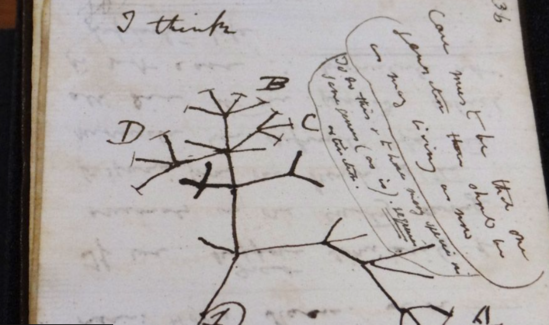 36
I think
B
C
D
A
Case must be that one
generation then should be
as many living as now
To do this & to have many species in
same genus (as is). requires
extinction.